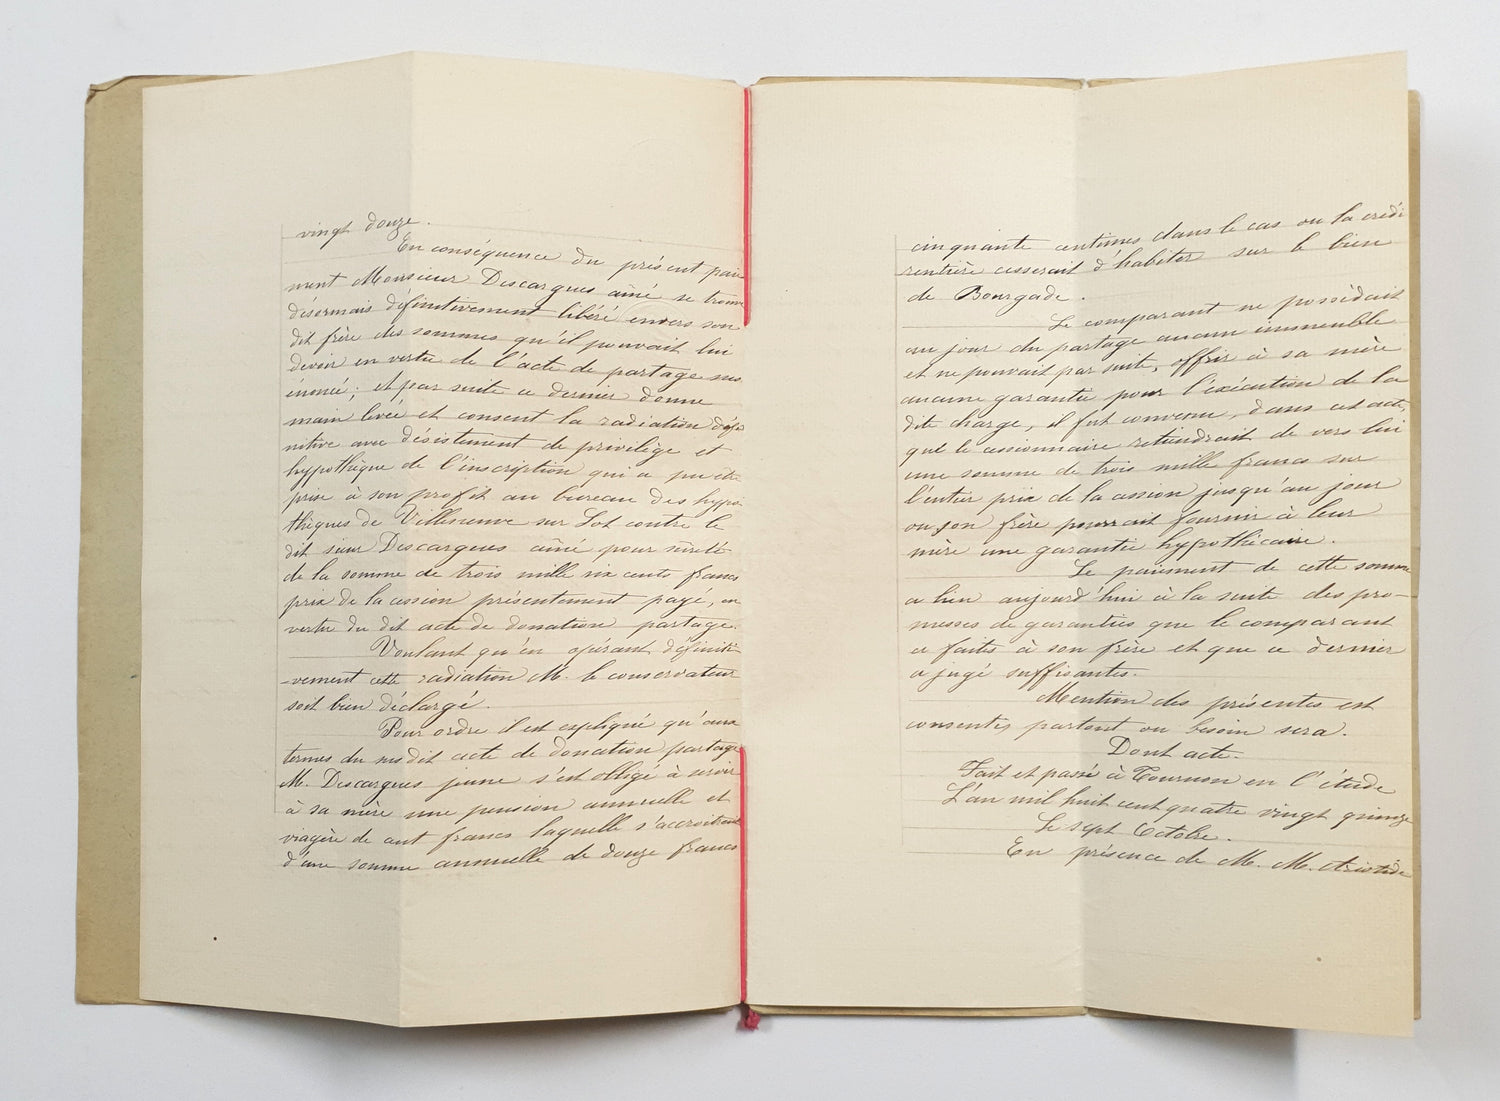 vingt douze.
En conséquence du présent paie
ment Monsieur Descargues ainé se trouve
désormais définitivement libéré envers son
dit frère des sommes qu'il pouvait lui
devoir en vertu de l'acte de partage sus
énoncé; et par suite ce dernier donne
main levée et consent la radiation défi
nitive avec désistement de privilège et
hypothèque de l'inscription qui a pu être
prise à son profit au bureau des hypo
thèques de Villeneuve sur Lot contre le
dit sieur Descargues ainé pour sûreté
de la somme de trois mille six cents francs
prix de la cession présentement payé, en
vertu du dit acte de donation partage.
Voulant qu'en opérant définiti
-vement cette radiation M. le conservateur
soit bien déchargé.
Pour ordre il est expliqué qu'aux
termes du susdit acte de donation partage
M. Descargues jeune s'est obligé à servir
à sa mère une pension annuelle et
viagère de cent francs laquelle s'accroitrait
d'une somme annuelle de douze francs
cinquante centimes dans le cas ou la crédi
rentière cesserait d'habiter sur le bien
de Bourgade.
Le comparant ne possédait
au jour du partage aucun immeuble
et ne pouvait par suite, offrir à sa mère
aucune garantie pour l'exécution de la
dite charge, il fut convenu, dans cet acte,
que le cessionnaire retiendrait de vers lui
une somme de trois mille francs sur
l'entier prix de la cession jusqu'au jour
ou son frère pourrait fournir à leur
mère une garantie hypothécaire.
Le paiement de cette somme
a lieu aujourd'hui à la suite des pro-
messes de garanties que le comparant
a faites à son frère et que ce dernier
a jugé suffisantes.
Mention des présentes est
consentie partout ou besoin sera.
Dont acte.
Fait et passé à Tournon en l'étude
L'an mil huit cent quatre vingt quinze
Le sept Octobre.
En présence de M. M. Aristide